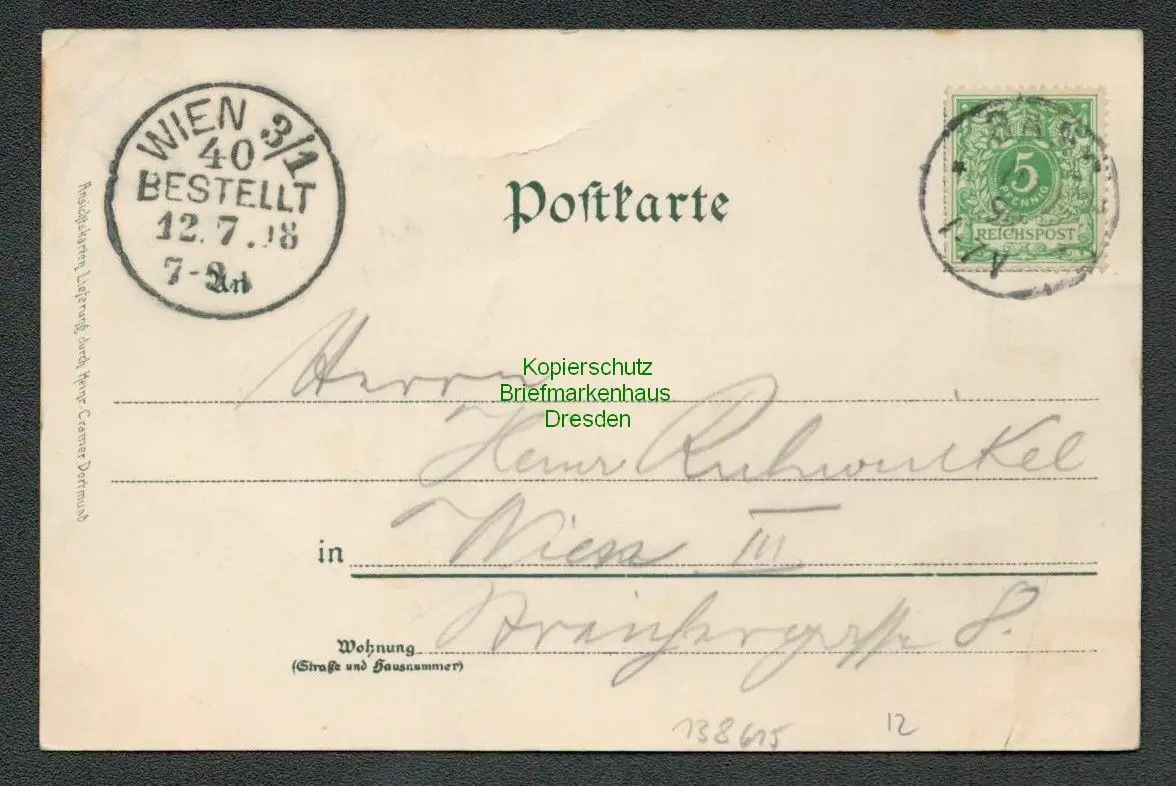 WIEN 3/1
40
BESTELLT
12.7.98
Postkarte
5
PFENNIG
REICHSPOST
Ansichtskarten Lieferung durch Heinr. Cramer Dortmund
Herrn
Kopierschutz
Briefmarkenhaus
Dresden
Heinr Ruhwinkel
in Wien III
Wohnung
(Straße und Hausnummer)
8.
138615
12